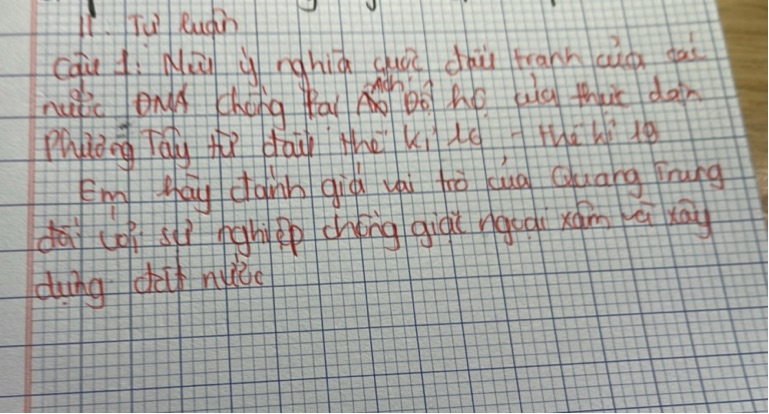 II. Tự luận
Câu 1: Nêu ý nghĩa cuộc đấu tranh của các
nước ĐNA chống lại ách đô hộ của thực dân
Phương Tây từ đầu thế kỉ 16 - thế kỉ 19
Em hãy đánh giá vai trò của Quang Trung
đối với sự nghiệp chống giặc ngoại xâm và xây
dựng đất nước